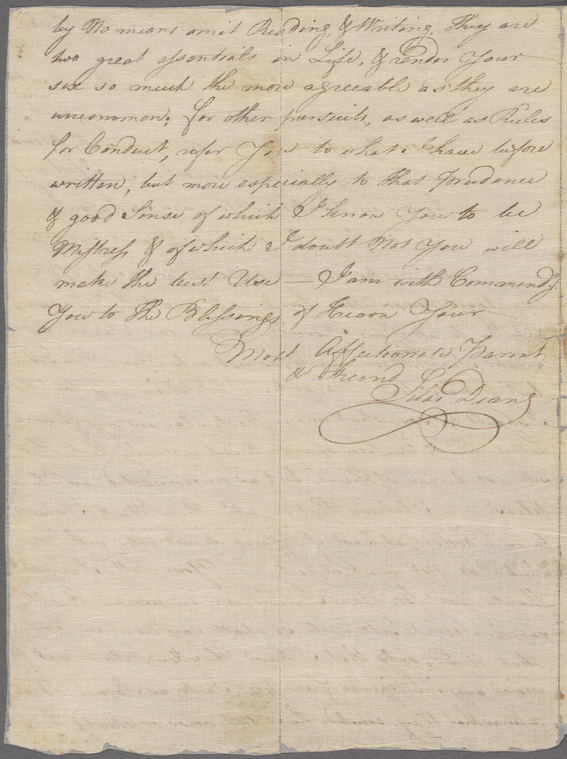 by No means omit Reading, & Writing. They are
two great essentials in Life, & render Your
sex so much the more agreeable as they are
uncommon; for other pursuits, as well as Rules
for Conduct, refer You to what I have before
written, but more especially to that Prudence
& good Sense of which I know You to be
Mistress & of which I doubt Not You will
make the best Use — I am with Commendg.
You to the Blessings of Heaven Your
Most Affectionate Parent
& Freind
Silas Deane